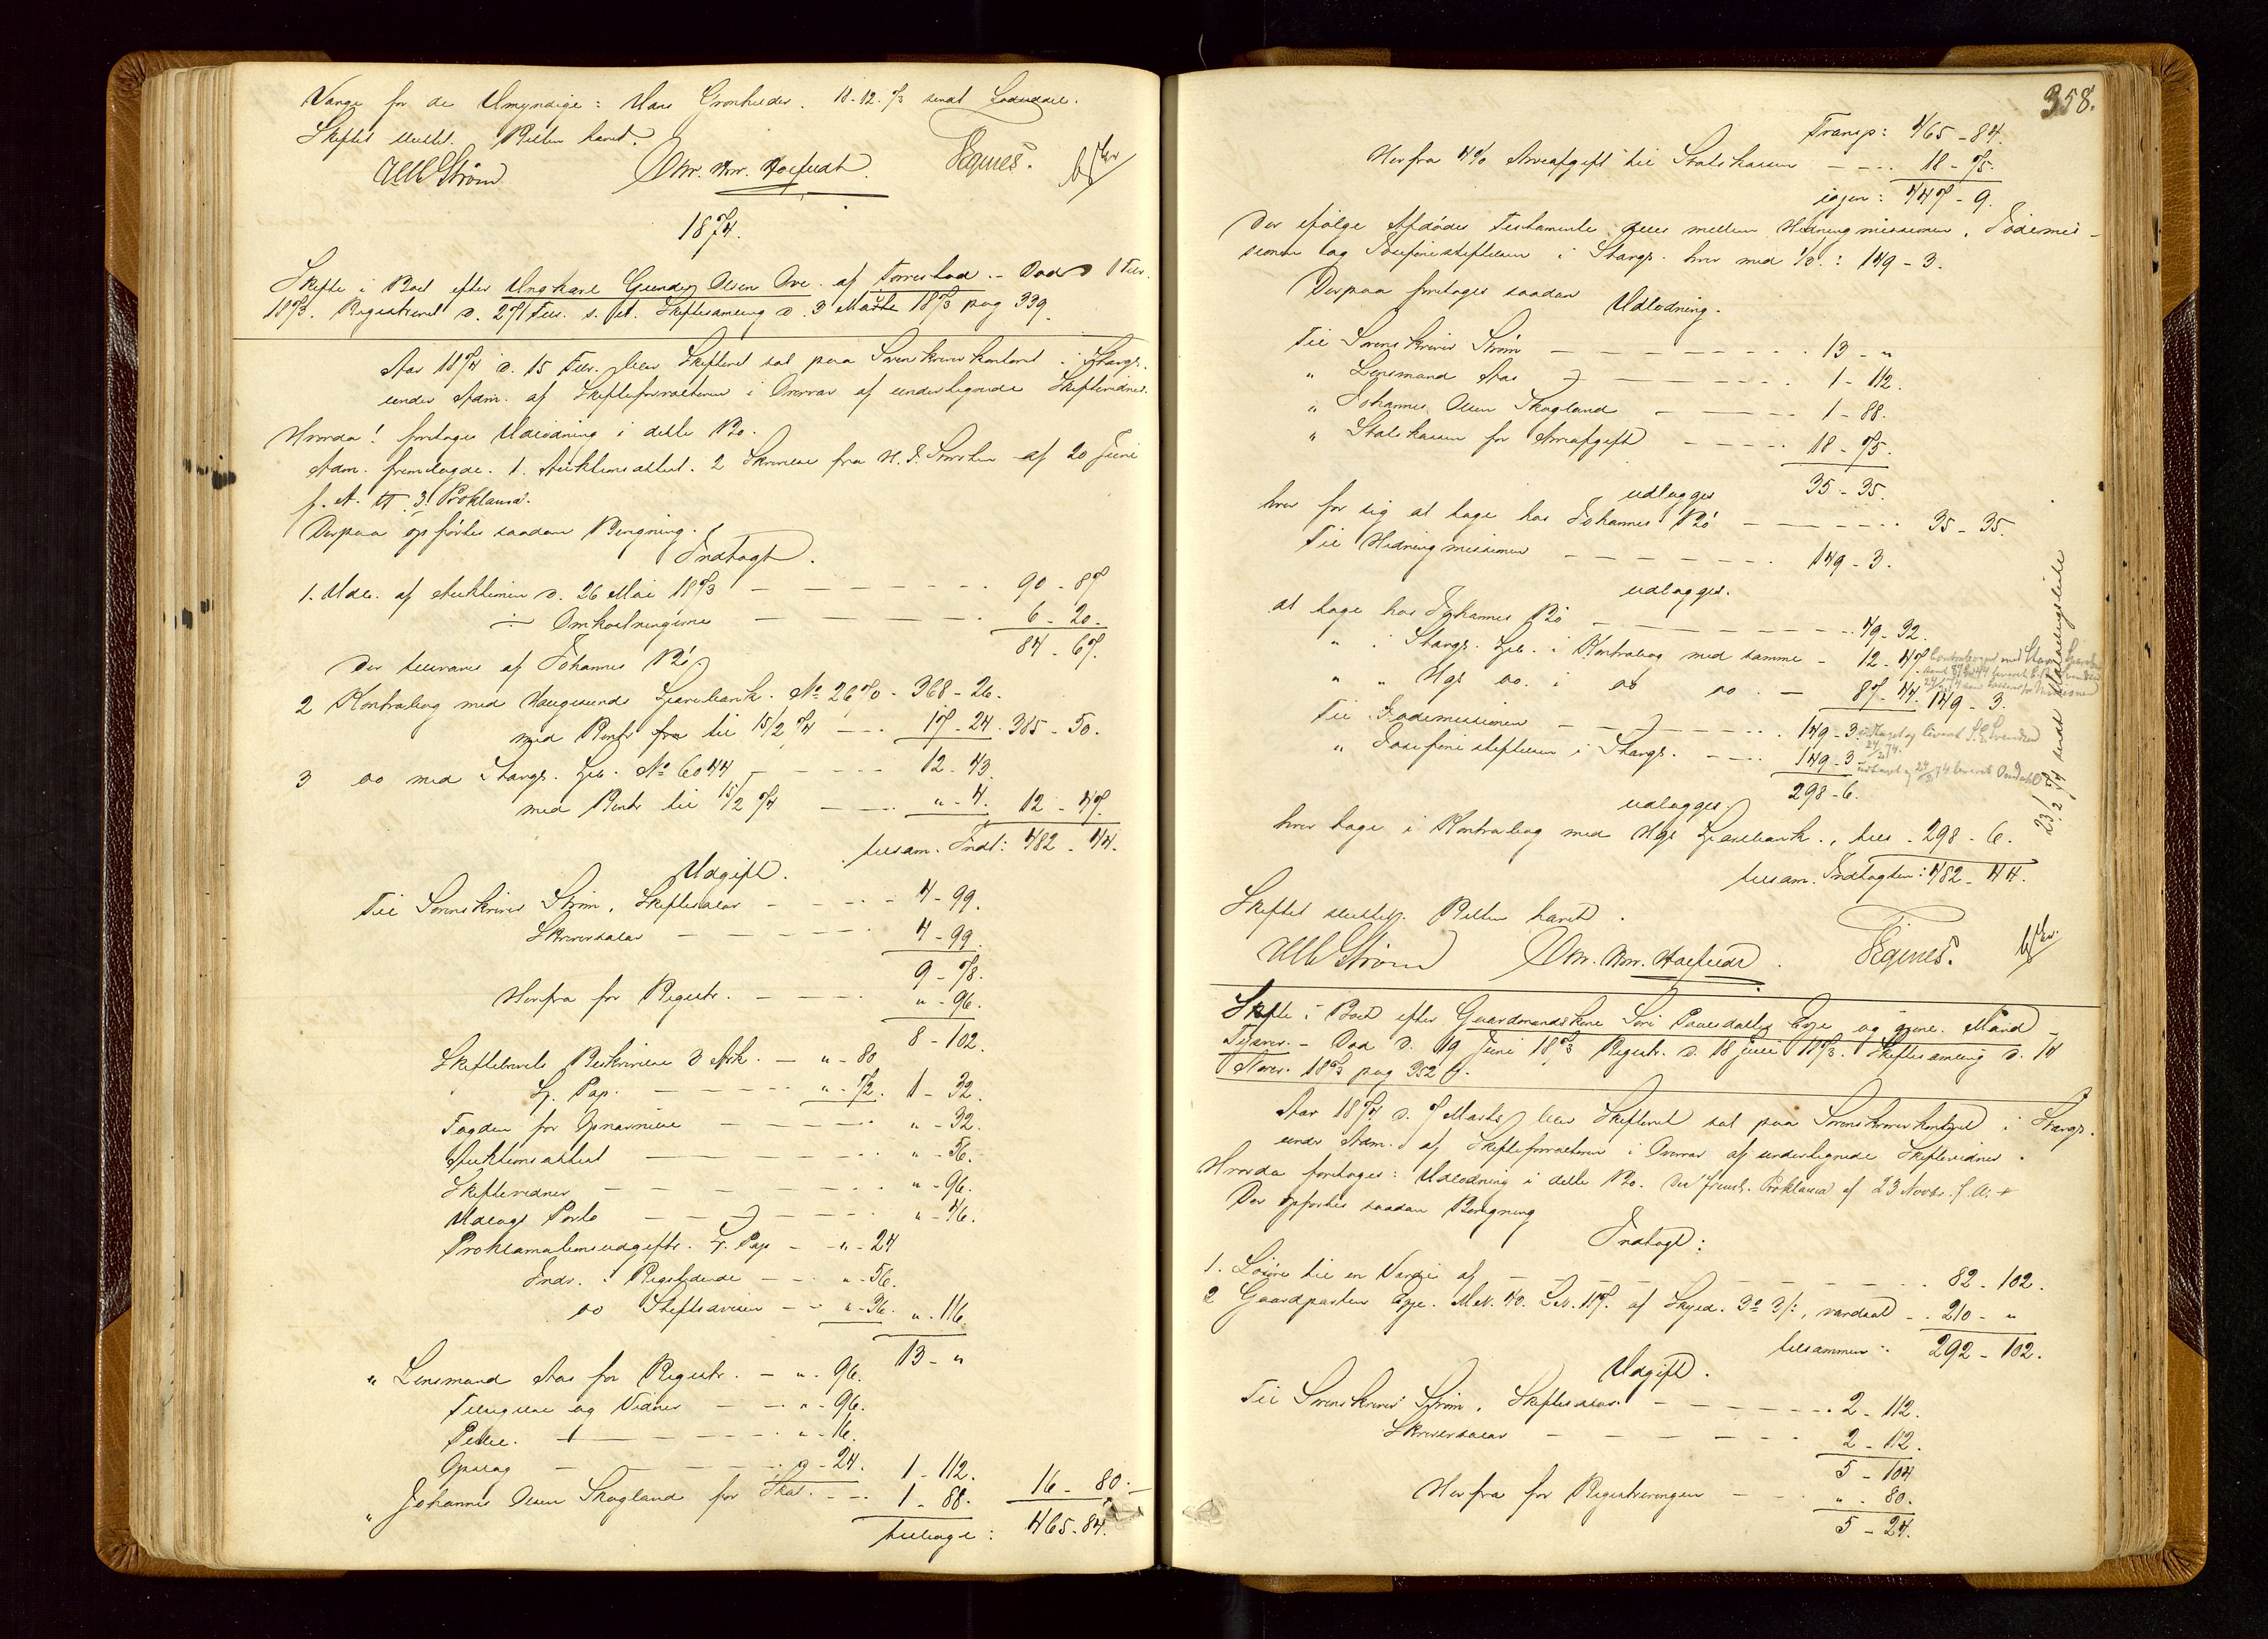 Værge for de Umyndige: Hans Grønhieder. 11-12. 73 sendt
Skiftet sluttet. Retten hævet.
UMStrøm Chr. Mor. Egenes.
1874.
Skifte i Boet efter Ungkarl Gunder Olsen Ore af Torrestad. - Død d 1 Febr.
1873. Registreret d. 27 Febr. s. A. Skiftesamling d. 3 Marts 1873 pag 339.
Aar 1874 d. 15 Febr. blev Skifteret sat paa Sorenskriverkontoret i Stavgr.
under Adm. af Skifteforvalteren i Overvær af undertegnede Skiftevidner.
Hvorda! foretoges Udlodning i dette Bo.
Adm. fremlagde. 1. Auktionsattest. 2 Skrivelse fra af 20 Juni
f. A. 3! Proklama.
Derpaa opførtes saadan Beregning.
Indtægt.
1. Udb. af Auktionen d. 26 Mai 1873 — 90 - 87
÷ Omkostningerne — 6 - 20.
84 - 67.
Der tilsvares af Johannes Bø
2 Kontrabog med Haugesunds Sparebank. No 2670. 368 - 26.
med Rente fra til 15/2 74 — 17 - 24. 385 - 50.
3 do med Stavgr. Spb. No 6044 — 12 - 43.
med Rente til 15/2 74 — " - 4. 12 - 47.
tilsam. Indt: 482 - 44.
Udgift.
Til Sorenskriver Strøm, Skiftesalar — 4 - 99.
Skriversalar — 4 - 99.
9 - 78.
Herfra for Registr. — " - 96.
8 - 102.
Skiftebrevets Beskrivelse 3 Ark. — " - 80
St. Pap. — " - 72. 1 - 32.
Fogden for Opnævnelse — " - 32.
Auktionsattest — " - 56.
Skiftevidner — " - 96.
Udlagt Porto — " - 46.
Proklamationsudgifter. St. Pap — " - 24
Indr. i Rigstidende — " - 56.
do Stiftsavisen — " - 36. " - 116.
13 - "
" Lensmand Aas for Registr. — " - 96.
Tilsigelse og Vidner — " - 96.
Pakke. — " - 16.
Opslag — " - 24. 1 - 112.
" Johannes Olsen Skogland for Skat. — 1 - 88. 16 - 80.
tilbage: 465 - 84.
358.
Transp: 465 - 84.
Herfra 4% Arveafgift til Statskassen — 18 - 75.
igjen: 447 - 9.
Der ifølge Afdødes Testamente deles mellem Hedningmissionen, Jødemis-
sionen og Josefinestiftelsen i Stavgr. hver med 1/3: 149 - 3.
Derpaa foretoges saadan Udlodning.
Til Sorenskriver Strøm — 13 - "
" Lensmand Aas — 1 - 112.
" Johannes Olsen Skogland — 1 - 88.
" Statskassen for Arveafgift — 18 - 75.
35 - 35.
udlægges
hver for sig at tage hos Johannes Bø — 35 - 35.
Til Hedningmissionen — 149 - 3.
udlægges.
at tage hos Johannes Bø — 49 - 32.
" " i Stavgr. Spb. i Kontrabog med samme — 12 - 47.
" " Hgs do. i do do. — 87 - 44. 149 - 3.
Til Jødemissionen — 149 - 3.
" Josefinestiftelsen i Stavgr. — 149 - 3.
298 - 6.
udlægges.
hver tage i Kontrabog med Hgs Sparebank., tils. 298 - 6.
tilsam. Indtægten: 482 - 44.
23/2 74 sendt
Skiftet sluttet. Retten hævet.
UMStrøm Chr. Mor. Egenes.
Skifte i Boet efter Gaardmandskone Siri Paulsdatter Ege og gjenl. Mand
Tysvær. - Død d. 19 Juni 1873 Registr. d. 18 Juli 1873. Skiftesamling d. 14
Novbr. 1873 pag 352 b.
Aar 1874 d. 7 Marts blev Skifteret sat paa Sorenskriverkontoret i Stavgr.
under Adm. af Skifteforvalteren i Overvær af undertegnede Skiftevidner.
Hvorda foretoges: Udlodning i dette Bo. Der freml. Proklama af 23 Novbr. f. A.
Der opførtes saadan Beregning
Indtægt:
1. Løsøre til en Værdi af — 82 - 102.
2 Gaardparten Ege. M.N. 40. L.N. 117. af Skyld. 3 3/:, værdsat — 210 - "
tilsammen: 292 - 102.
Udgift.
Til Sorenskriver Strøm, Skiftesalar — 2 - 112.
Skriversalar — 2 - 112.
5 - 104
Herfra for Registreringen — " - 80.
5 - 24.